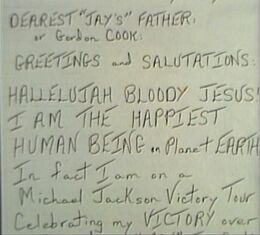 DEAREST "JAY'S" FATHER:
or Gordon COOK:
GREETINGS and SALUTATIONS:
HALLELUJAH BLOODY JESUS!
I AM THE HAPPIEST
HUMAN BEING on Planet EARTH
In fact I am on a
Michael Jackson Victory Tour
Celebrating my VICTORY over